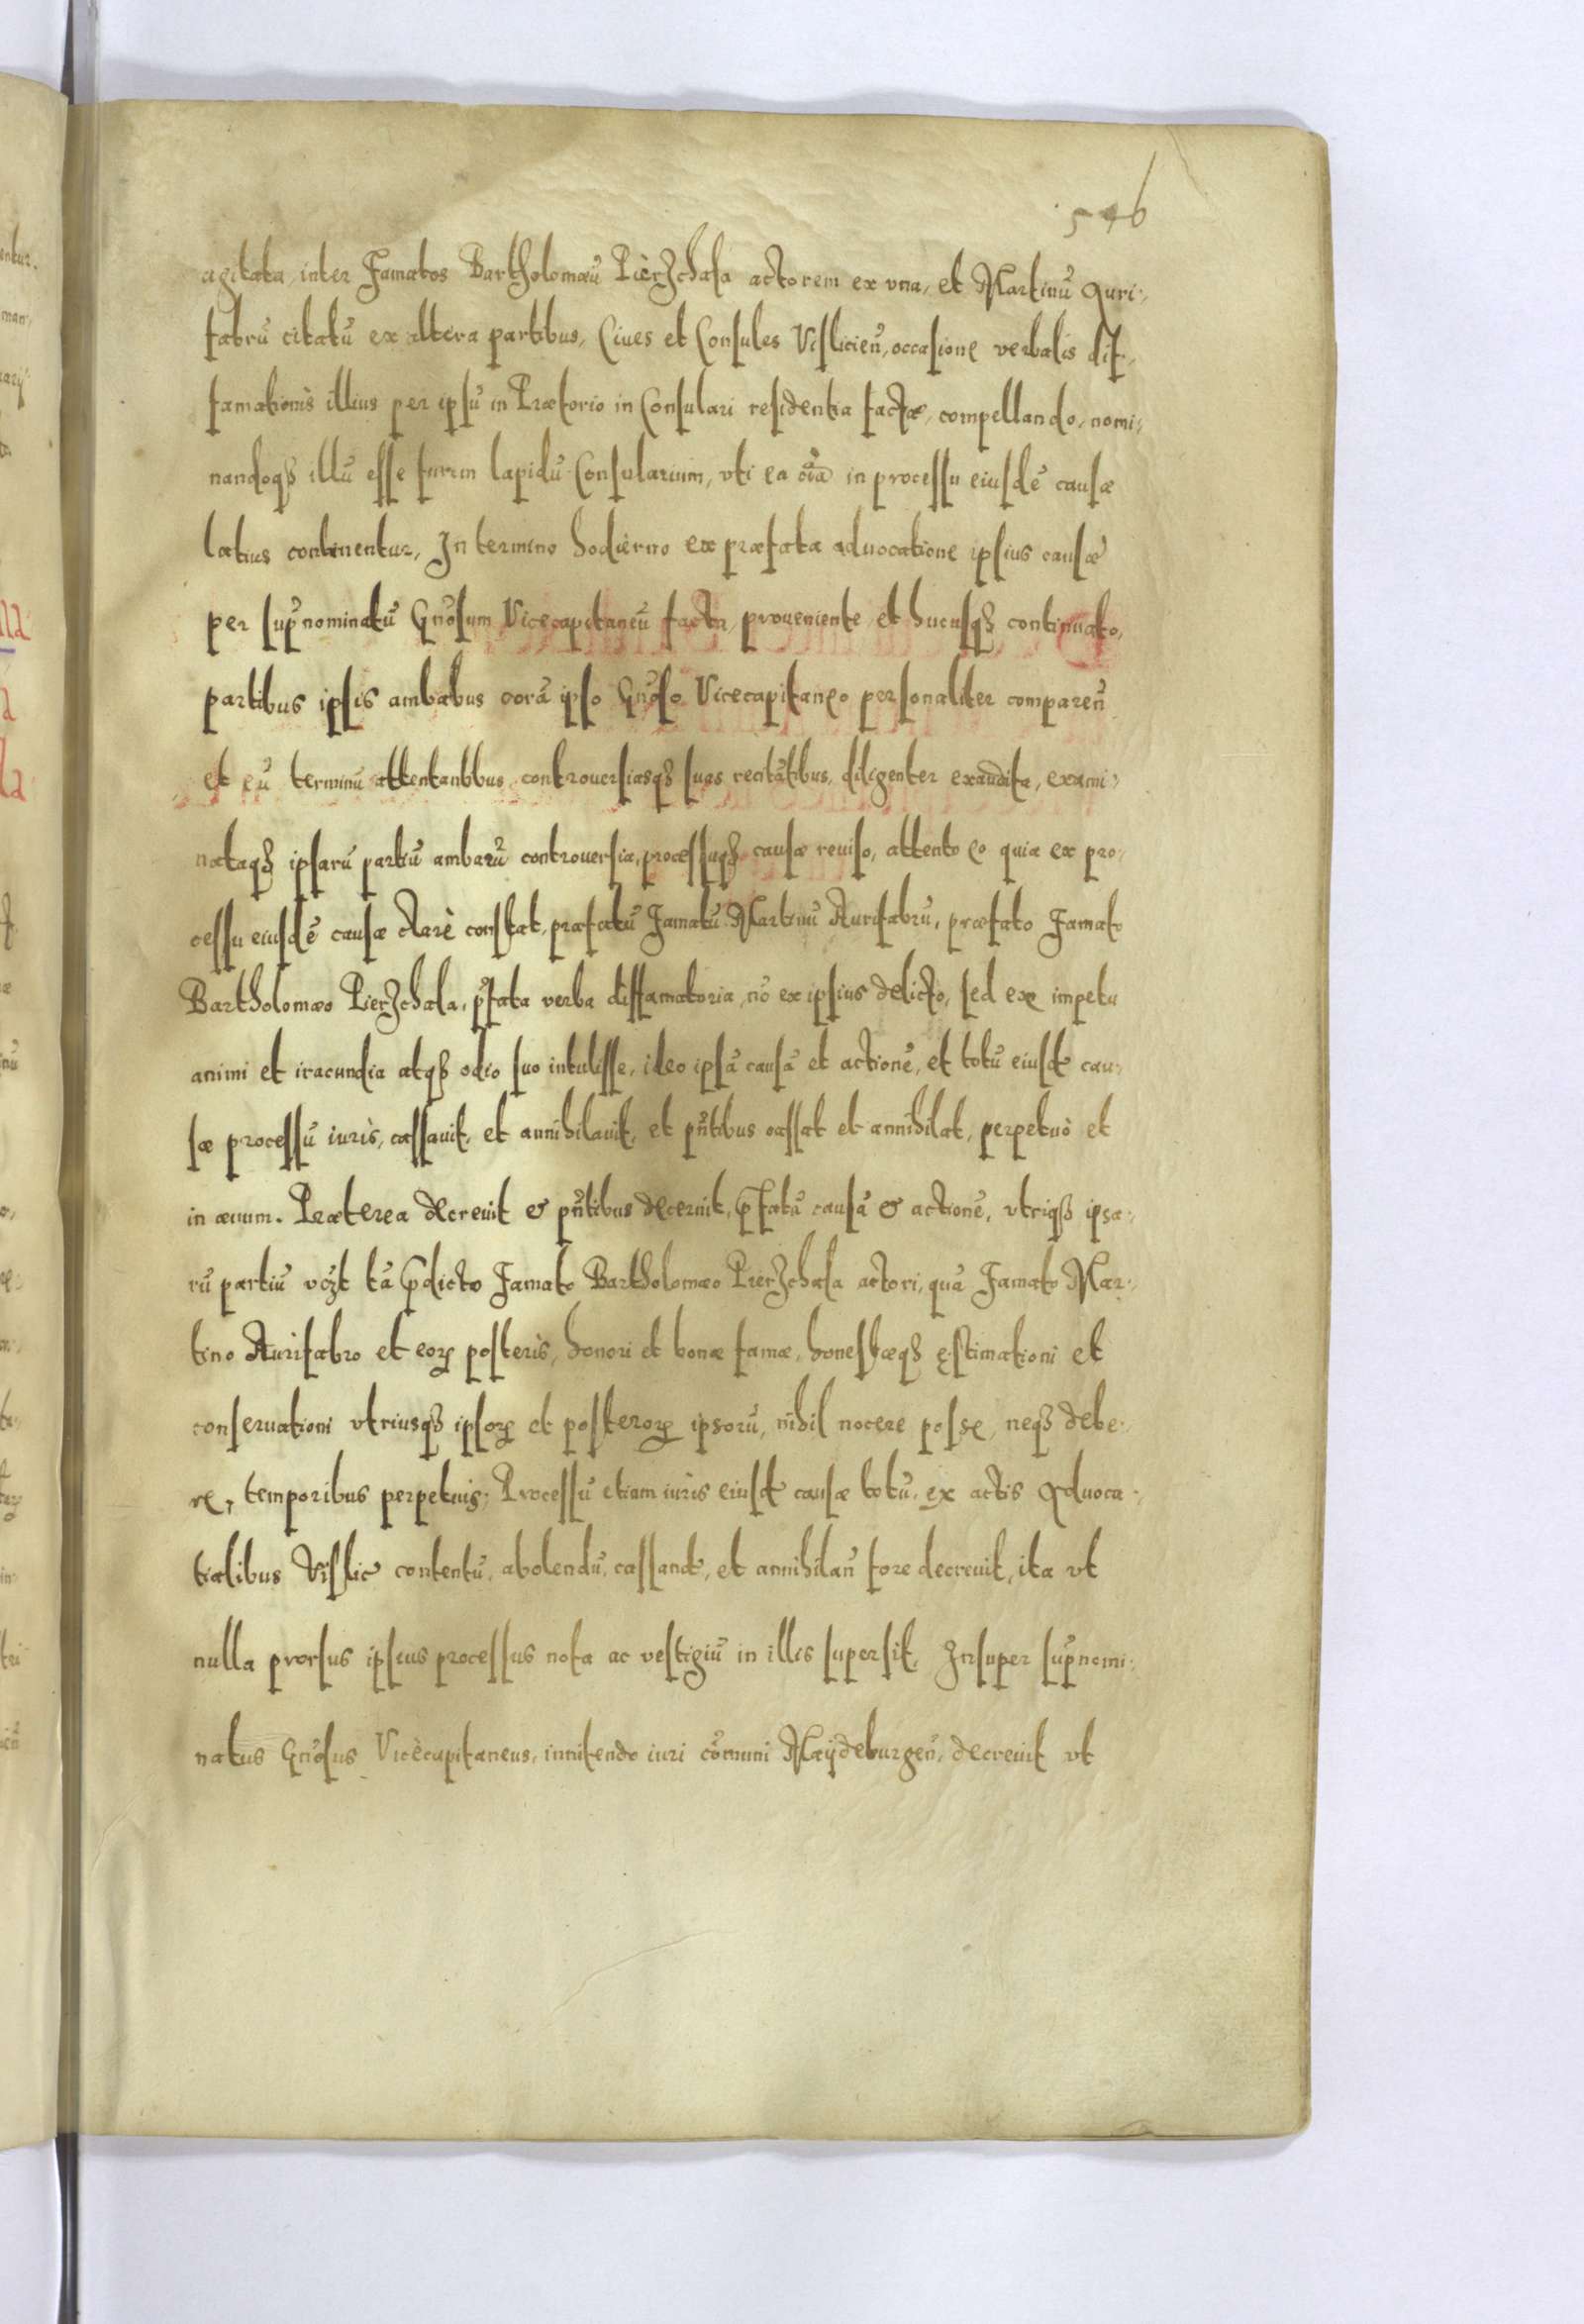 546
agitata, inter Famatos Bartholomæũ Pierzchala actorem ex vna, et Martinũ Auri-
fabrũ citatũ ex altera partibus, Ciues et Consules Visliciẽn, occasione verbalis dif-
famationis illius per ipsũ in Prætorio in Consulari residentia factæ, compellando, nomi-
nandoqȝ illũ esse furem lapidũ Consularium, vti ea oĩa in processu eiusdẽ causæ
latius continentur, In termino hodierno ex præfata aduocatione ipsius causæ
per sup̃nominatũ Gñosum Vicecapitaneũ facta, proueniente et hucusqȝ continuato,
partibus ipsis ambabus corã ipso Gñoso Vicecapitaneo personaliter compareñ
et eũ terminũ attentantibus, controuersiasqȝ suas recitãtibus, diligenter exaudita, exami-
nataqȝ ipsarũ partiũ ambarũ controuersia, processuqȝ causæ reuiso, attento eo quia ex pro-
cessu eiusdẽ causæ clarè constat, præfatũ Famatũ Martinũ Aurifabrũ, præfato Famato
Bartholomæo Pierzchala, p̃fata verba diffamatoria, nõ ex ipsius delicto, sed ex impetu
animi et iracundia atqȝ odio suo intulisse, ideo ipsã causã et actionẽ, et totũ eiusd̃ cau-
sæ processũ iuris, cassauit, et annihilauit, et pñtibus cassat et annihilat, perpetuò et
in æuum. Præterea decreuit & pñtibus decernit, p̃fatã causã & actionẽ, vtriqȝ ipsa-
rũ partiũ vczt tã p̃dicto Famato Bartholomæo Pierzchala actori, quã Famato Mar-
tino Aurifabro et eorꝝ posteris, honori et bonæ famæ, honestæqȝ ęstimationi et
conseruationi vtriusqȝ ipsorꝝ et posterorꝝ ipsorũ, nihil nocere posse, neqȝ debe-
re, temporibus perpetuis; Processũ etiam iuris eiusd̃ causæ totũ, ex actis Aduoca-
tialibus Vislic̃ contentũ, abolendũ, cassand̃, et annihilañ fore decreuit, ita vt
nulla prorsus ipsius processus nota ac vestigiũ in illis supersit. Insuper sup̃nomi-
natus Gñosus Vicecapitaneus, innitendo iuri cõmuni Maÿdeburgeñ, decreuit vt